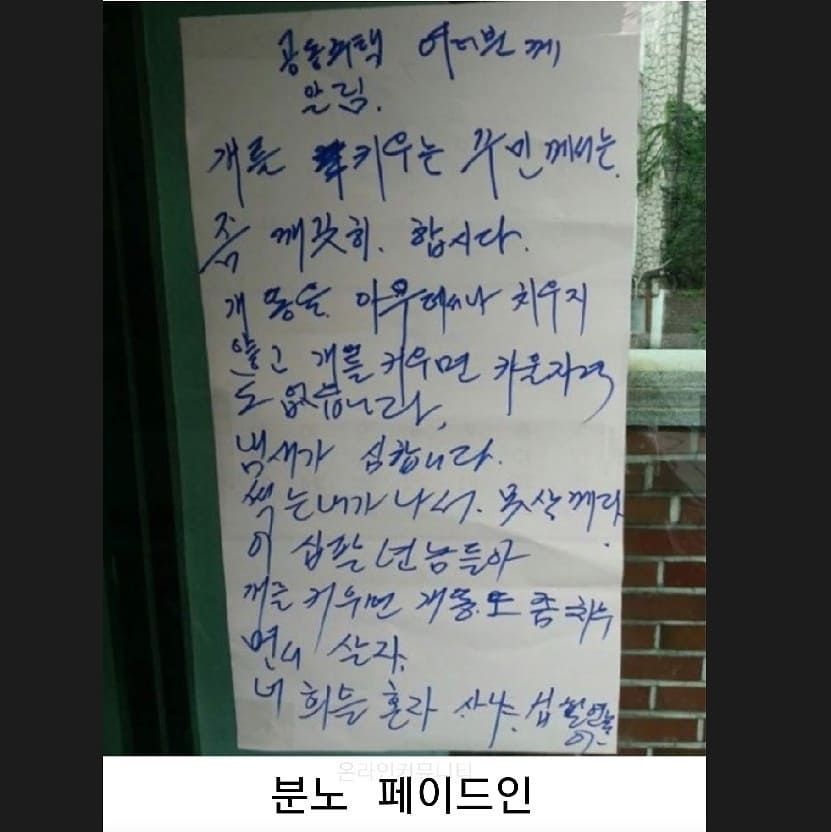 공동주택 여러분께
알림.
개를 키우는 주민께서는.
좀 깨끗히. 합시다.
개똥을. 아무데서나 치우지
않고 개를 키우면 키울자격
도 없습니다,
냄새가 심합니다.
썩는내가 나서. 못살께다.
이 십팔 년놈들아
개를 키우면 개똥.도 좀 치우
면서 살자,
너희들 혼라 사냐. 십팔연놈
아-
온라인커뮤니티
분노 페이드인